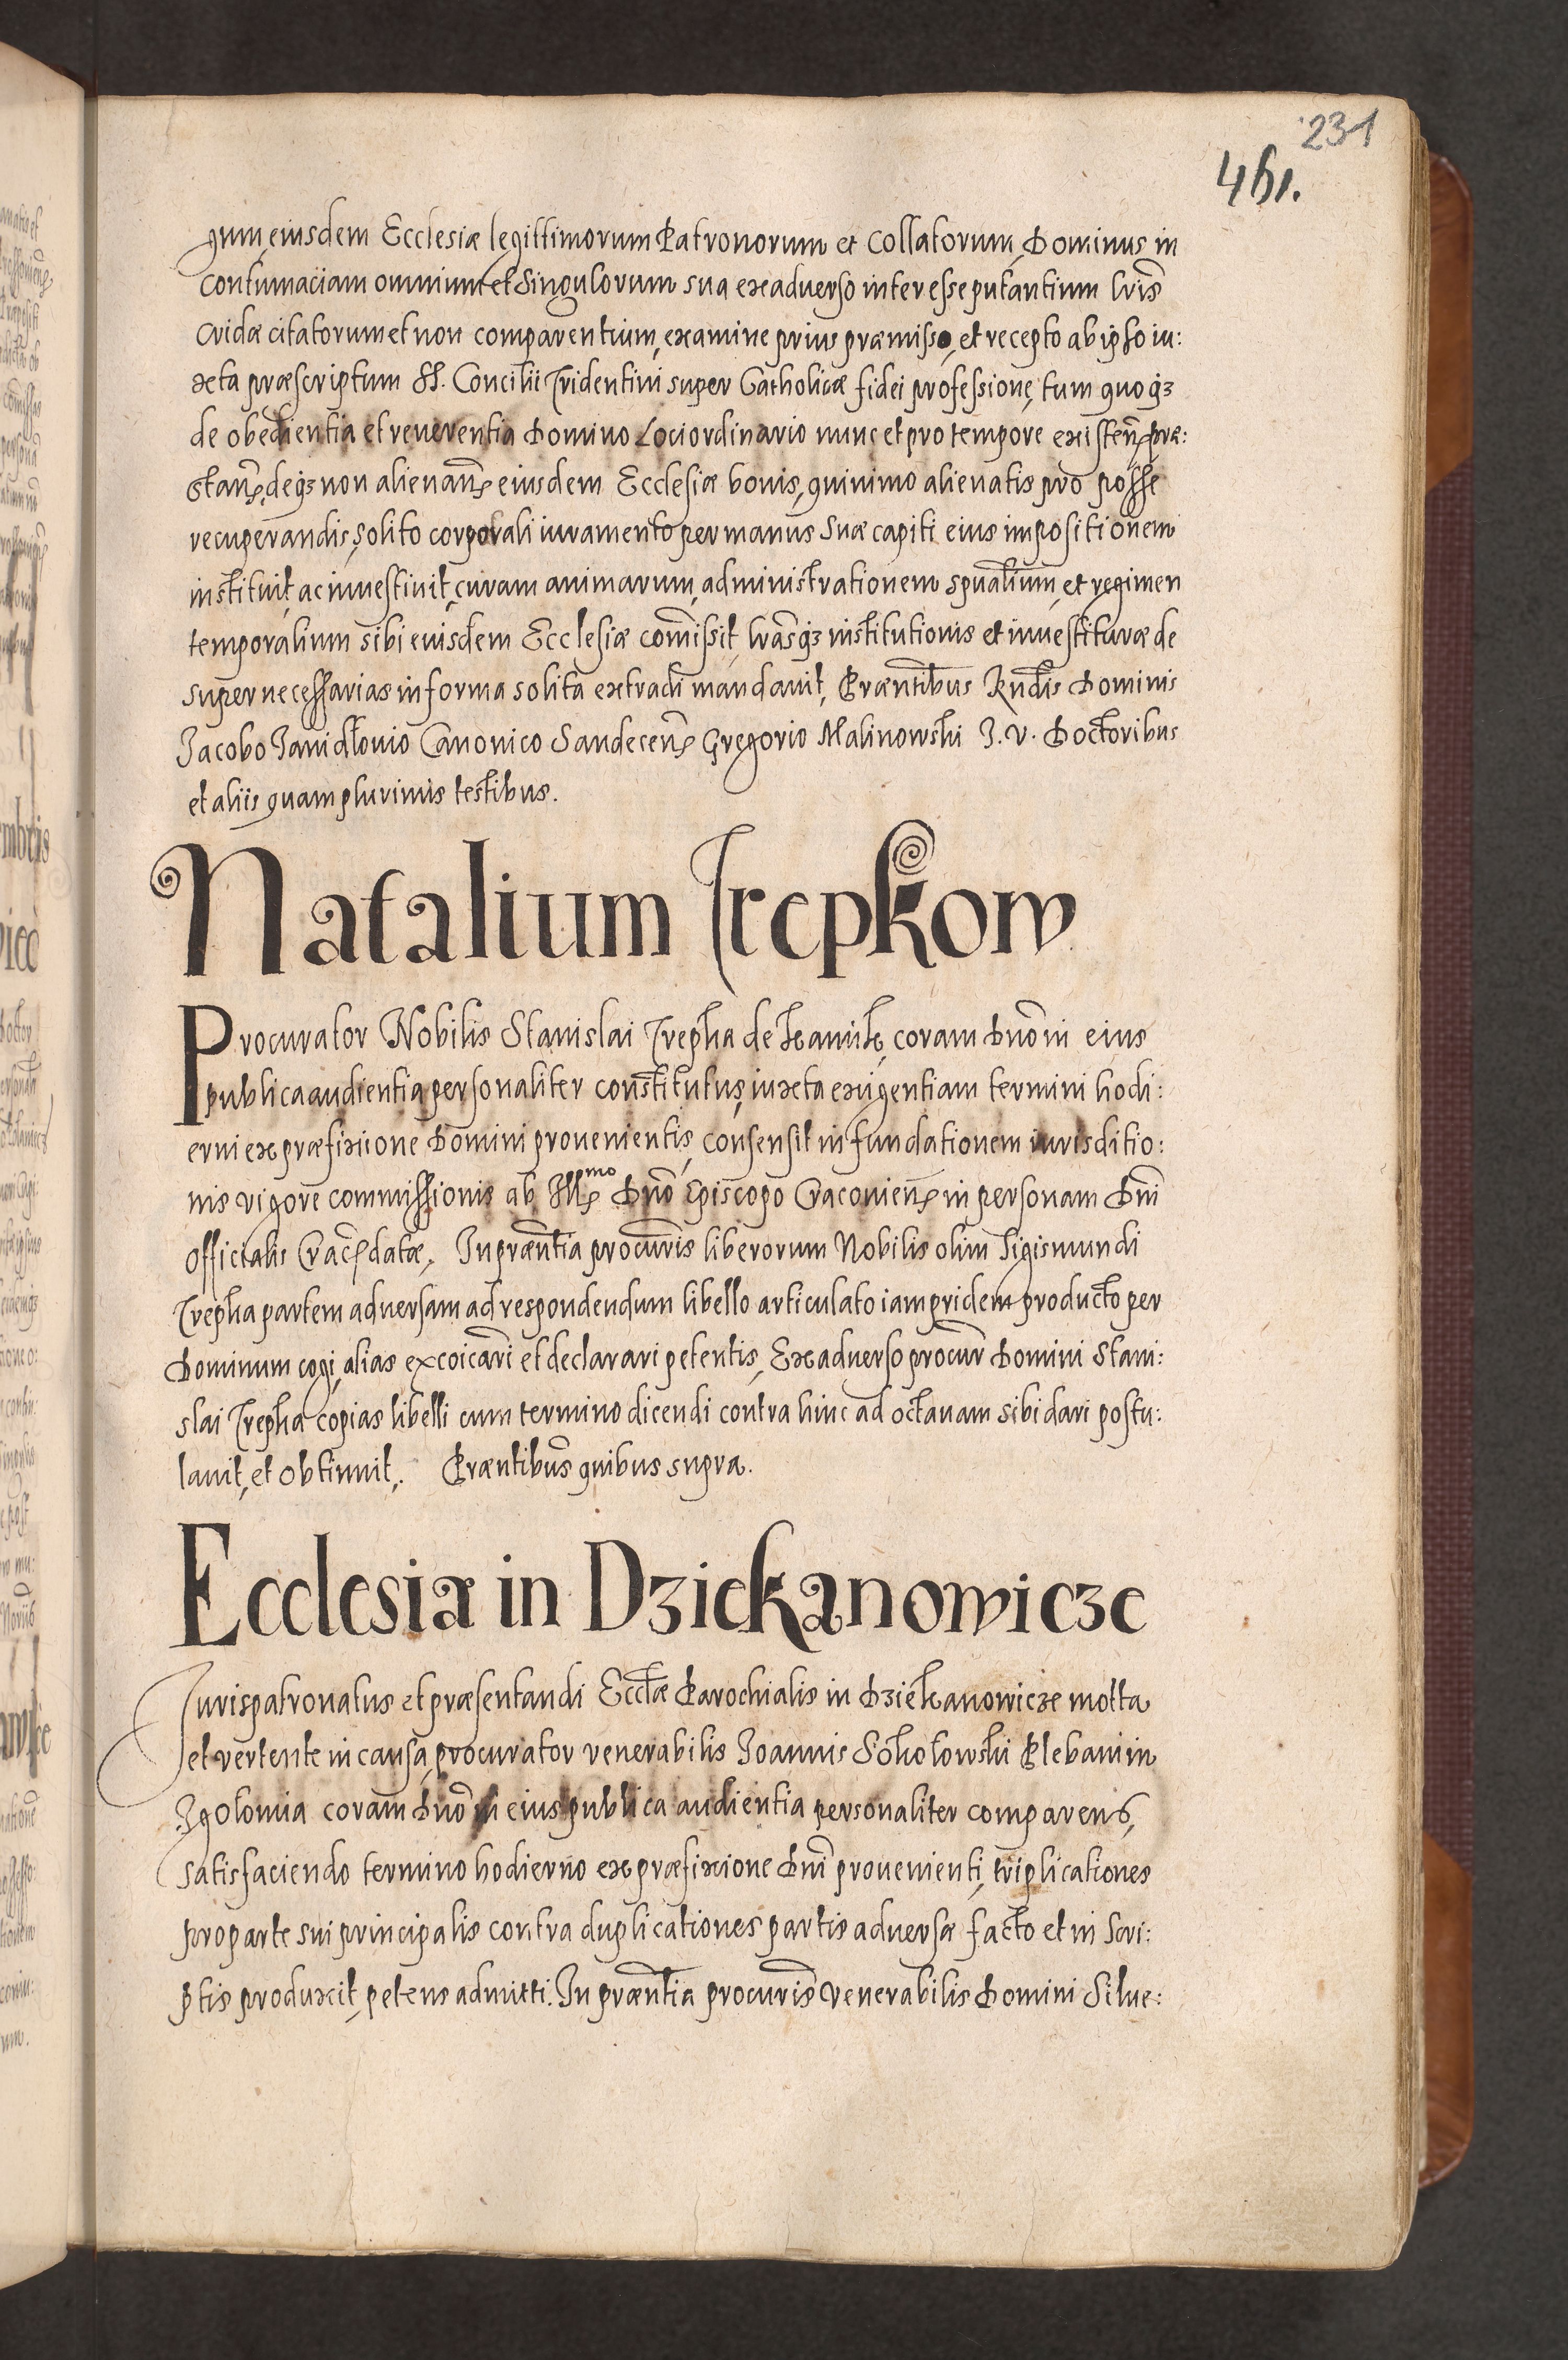 231
461.
gum, eiusdem Ecclesiæ legittimorum Patronorum et Collatorum, Dominus in
contumaciam omnium et Singulorum sua ex adverso interesse putantium lrĩs
Cridæ citatorum et non comparentium, examine prius præmisso, et recepto ab ipso iu:
xta præscriptum SS. Concilii Tridentini super Catholicæ fidei professione, tum quoqz
de obedientia et reverentia Domino Loci ordinario nunc et pro tempore existeñ præ:
stañ, deqz non alienañ eiusdem Ecclesiæ bonis, quinimo alienatis pro posse
recuperandis, solito corporali iuramento per manus suæ capiti eius impositionem
instituit ac inuestiuit, curam animarum, administrationem spũalium, et regimen
temporalium sibi eiusdem Ecclesiæ com̃isit, lrãsqz institutionis et inuestituræ de
super necessarias in forma solita extradi mandauit, Præntibus Rñdis Dominis
Jacobo Janidlouio Canonico Sandeceñ Gregorio Malinowski J. V. Doctoribus
et aliis quam plurimis testibus.
Natalium Trepkow
Procurator Nobilis Stanislai Trepka de coram Dnõ in eius
publica audientia personaliter constitutus, iuxta exigentiam termini hodi:
erni ex præfixione Domini prouenientis, consensit in fundationem iurisditio:
nis vigore commissionis ab Illmo Dnõ Episcopo Cracovieñ in personam Dñi
Officialis Crac̃ datæ. In præntia procuris liberorum Nobilis olim Sigismundi
Trepka partem aduersam ad respondendum libello articulato iampridem producto per
Dominum cogi, alias excoĩcari et declarari petentis, Ex aduerso procur̃ Domini Stani:
slai Trepka copias libelli cum termino dicendi contra hinc ad octauam sibi dari postu:
lauit, et obtinuit. Præntibus quibus supra.
Ecclesiæ in Dziekanowicze
Jurispatronatus et præsentandi Ecctæ Parochialis in Dziekanowicze motta
et vertente in causa, procurator venerabilis Joannis Sokolowski Plebani in
Igolomia coram Dnõ in eius publica audientia personaliter comparens,
satisfaciendo termino hodierno ex præfixione Dñi prouenienti, triplicationes
pro parte sui principalis contra duplicationes partis aduersæ facto et in scri:
ptis produxit, petens admitti. In præntia procuris Venerabilis Domini Silue: